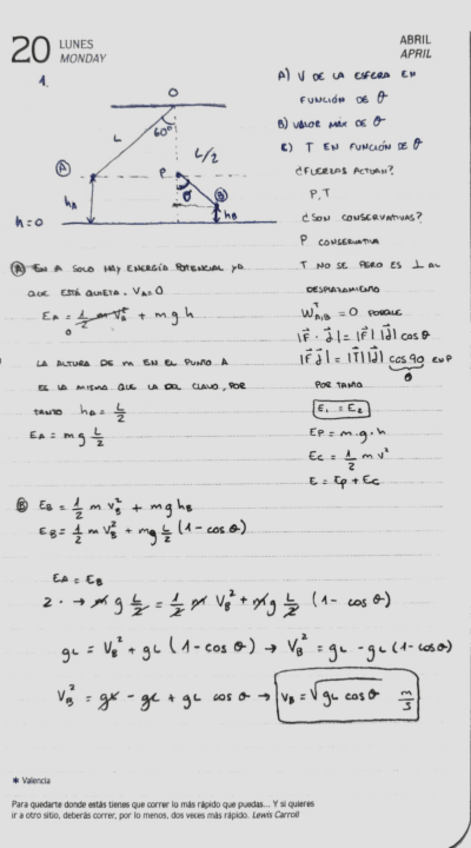 20 LUNES
MONDAY
ABRIL
APRIL
1.
O
60°
L
L/2
A
P
θ
B
hA
hB
h=0
A) V DE LA ESFERA EN
FUNCIÓN DE θ
B) VALOR MÁX DE θ
C) T EN FUNCIÓN DE θ
¿FUERZAS ACTUAN?
P, T
¿SON CONSERVATIVAS?
P CONSERVATIVA
T NO SE PERO ES ⊥ AL
DESPLAZAMIENTO
W^T_{A/B} = 0 PORQUE
|F⃗ · d⃗| = |F⃗| |d⃗| cos θ
|F⃗ d⃗| = |T⃗| |d⃗| cos 90 EN P
0
POR TANTO
E₁ = E₂
EP = m.g.h
Ec = 1/2 m v²
E = Ep + Ec
A EN A SOLO HAY ENERGÍA POTENCIAL YA
QUE ESTÁ QUIETA. VA=0
EA = 1/2 m VB² + m g h
0
LA ALTURA DE m EN EL PUNTO A
ES LA MISMA QUE LA DEL CLAVO, POR
TANTO hA = L/2
EA = m g L/2
B EB = 1/2 m VB² + m g hB
EB = 1/2 m VB² + mg L/2 (1 - cos θ)
EA = EB
2 · → m g L/2 = 1/2 m VB² + m g L/2 (1 - cos θ)
gL = VB² + gL (1 - cos θ) → VB² = gL - gL (1 - cos θ)
VB² = gL - gL + gL cos θ → VB = √(gL cos θ) m/s
* Valencia
Para quedarte donde estás tienes que correr lo más rápido que puedas... Y si quieres
ir a otro sitio, deberás correr, por lo menos, dos veces más rápido. Lewis Carroll